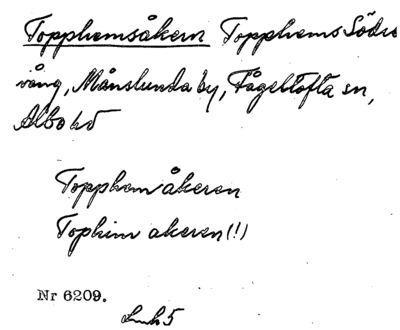 Topphemsåkern Topphems Södre
vång, Månslunda by, Fågeltofta sn,
Albo hd
Topphem åkeren
Tophim akeren (!)
Nr 6209.
Lmh 5